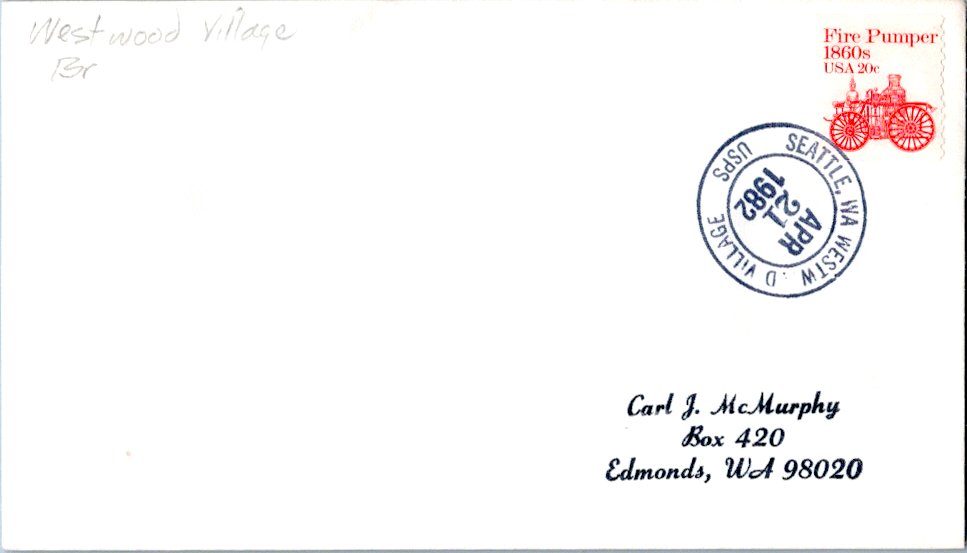 Westwood Village
Br
Fire Pumper
1860s
USA 20c
SEATTLE, WA WESTW D VILLAGE
USPS
APR
21
1982
Carl J. McMurphy
Box 420
Edmonds, WA 98020